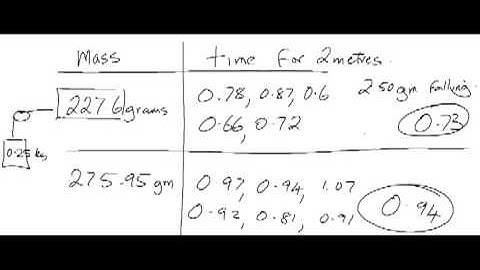 Mass time for 2 metres.
227.6 grams 0.78, 0.87, 0.6 250gm falling.
0.66, 0.72 0.73
0.25 kg
275.95 gm 0.97, 0.94, 1.07
0.92, 0.81, 0.91 0.94